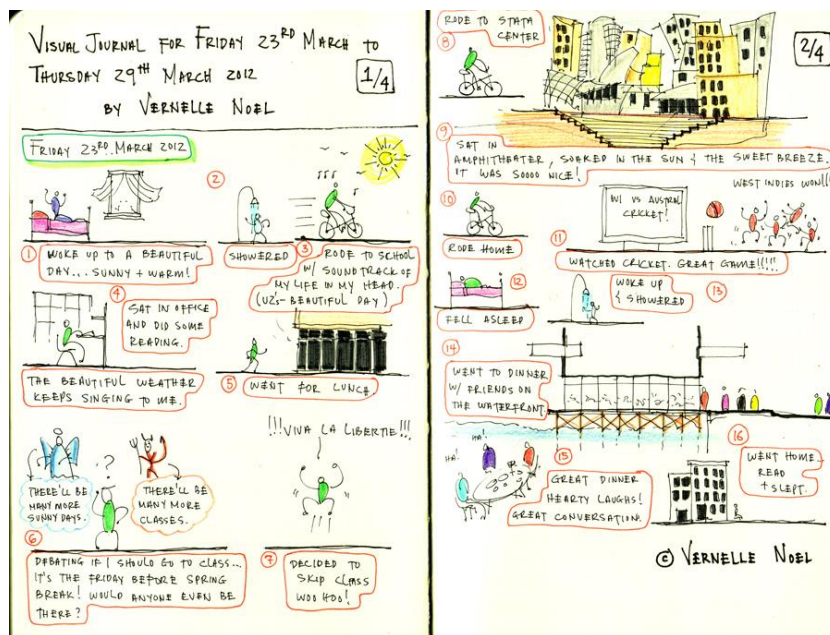 VISUAL JOURNAL FOR FRIDAY 23RD MARCH TO
THURSDAY 29TH MARCH 2012
1/4
BY VERNELLE NOEL
FRIDAY 23RD. MARCH 2012
1
WOKE UP TO A BEAUTIFUL
DAY... SUNNY + WARM!
2
SHOWERED
3
RODE TO SCHOOL
W/ SOUNDTRACK OF
MY LIFE IN MY HEAD.
(U2's - BEAUTIFUL DAY)
4
SAT IN OFFICE
AND DID SOME
READING.
THE BEAUTIFUL WEATHER
KEEPS SINGING TO ME.
5
WENT FOR LUNCH
THERE'LL BE
MANY MORE
SUNNY DAYS.
?
THERE'LL BE
MANY MORE
CLASSES.
6
DEBATING IF I SHOULD GO TO CLASS...
IT'S THE FRIDAY BEFORE SPRING
BREAK! WOULD ANYONE EVEN BE
THERE?
!!!VIVA LA LIBERTIE!!!
7
DECIDED TO
SKIP CLASS
WOO HOO!
RODE TO STATA
CENTER
8
2/4
9
SAT IN
AMPHITHEATER, SOAKED IN THE SUN & THE SWEET BREEZE.
IT WAS SOOOO NICE!
10
RODE HOME
WI VS AUSTRAL
CRICKET!
WEST INDIES WON!!!
11
WATCHED CRICKET. GREAT GAME!!!!!
12
FELL ASLEEP
WOKE UP
& SHOWERED
13
14
WENT TO DINNER
W/ FRIENDS ON
THE WATERFRONT.
HA!
HA!
15
GREAT DINNER
HEARTY LAUGHS!
GREAT CONVERSATION.
16
WENT HOME.
READ
+ SLEPT.
© VERNELLE NOEL